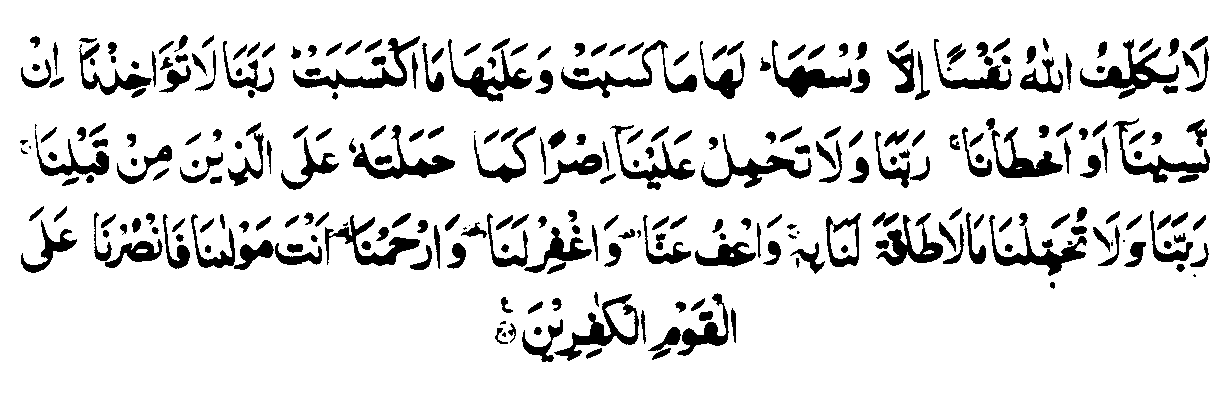 لَا يُكَلِّفُ اللّٰهُ نَفْسًا اِلَّا وُسْعَهَا ؕ لَهَا مَا كَسَبَتْ وَعَلَيْهَا مَا اكْتَسَبَتْ ؕ رَبَّنَا لَا تُؤَاخِذْنَاۤ اِنْ
نَّسِيْنَاۤ اَوْ اَخْطَاْنَا ۚ رَبَّنَا وَلَا تَحْمِلْ عَلَيْنَاۤ اِصْرًا كَمَا حَمَلْتَهٗ عَلَى الَّذِيْنَ مِنْ قَبْلِنَا ۚ
رَبَّنَا وَلَا تُحَمِّلْنَا مَا لَا طَاقَةَ لَنَا بِهٖ ۚ وَاعْفُ عَنَّا ۥ وَاغْفِرْ لَنَا ۥ وَارْحَمْنَا ۥ اَنْتَ مَوْلٰىنَا فَانْصُرْنَا عَلَى
الْقَوْمِ الْكٰفِرِيْنَ